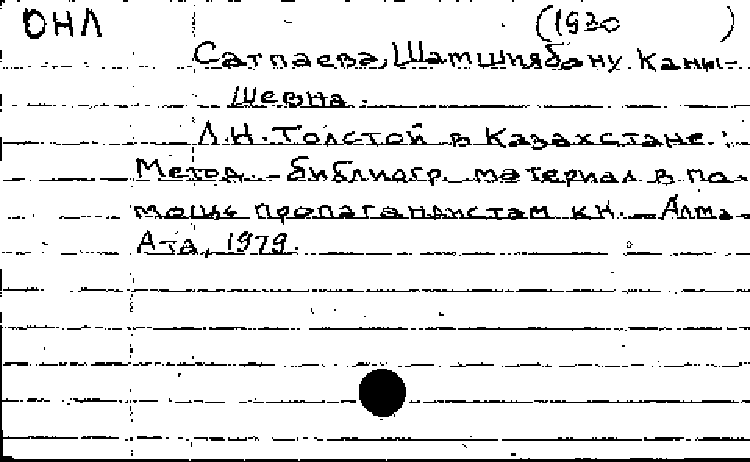 ОНЛ (1930 )
Сатпаева, Шамшиябану Каны-
шевна.
Л.Н. Толстой в Казахстане:
Метод.-библиогр. материал в по-
мощь пропагандистам кн. - Алма-
Ата, 1979.